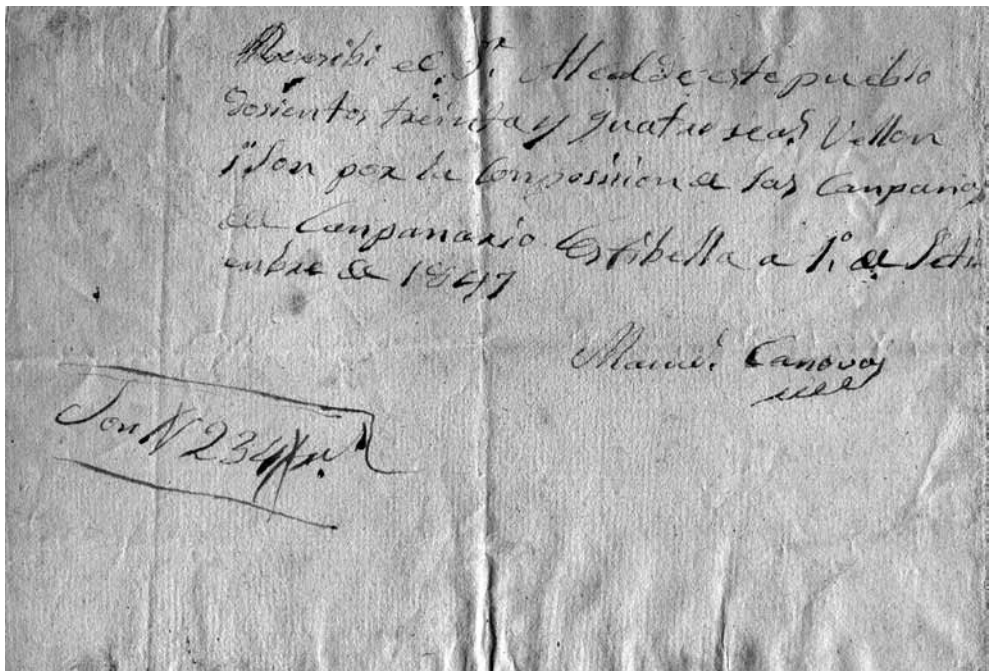 Recribi el Sr. Alcalde este pueblo
dosientos treinta y quatro reas Vellon
son por la Conposision de las Canpanas
del Canpanario Estibella a 1º. de Seti
enbre de 1847
Manuel Canovas
Son N 234 r.